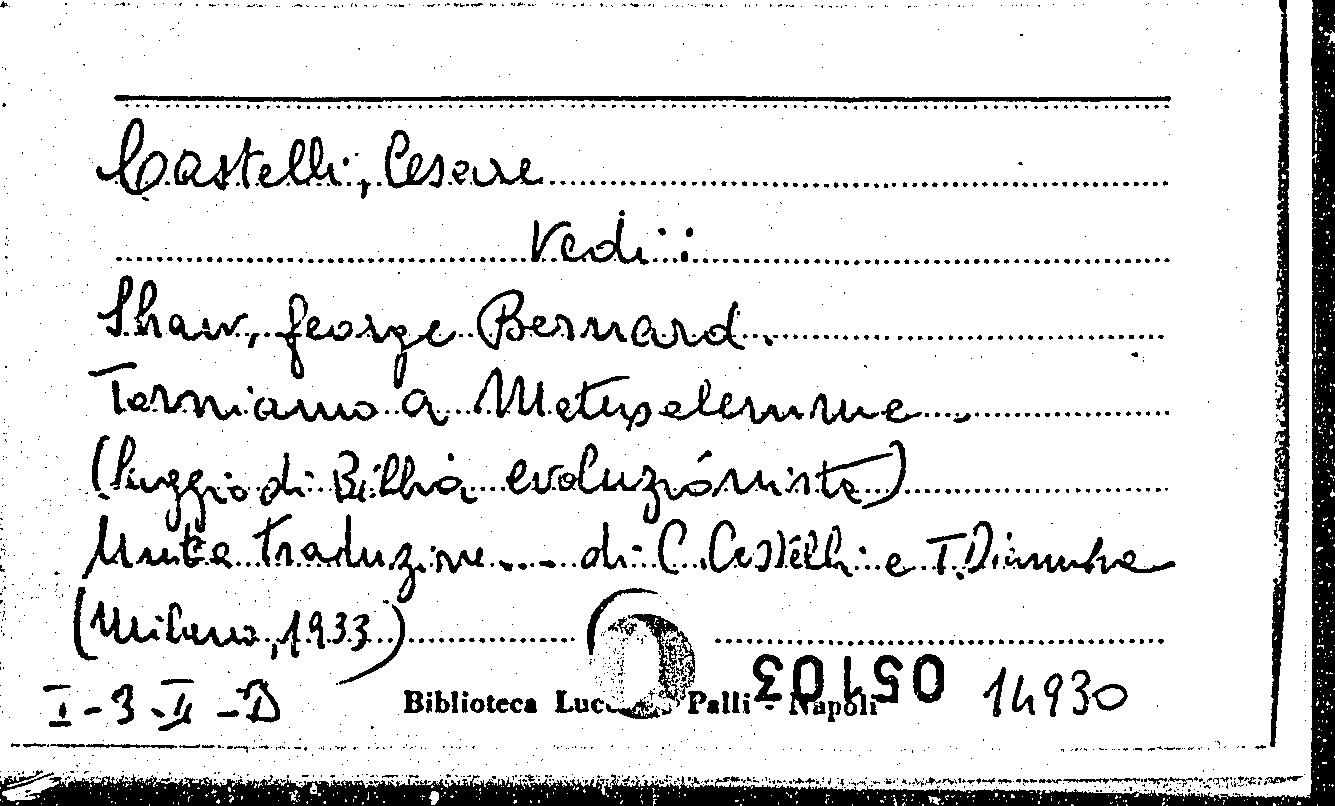 Castelli, Cesare
Vedi:
Shaw, George Bernard.
Torniamo a Matusalemme.
(Saggio di Bibbia evoluzionista)
traduzine... di C. Castelli e T. Diambra
(Milano, 1933)
I-3-II-D
Biblioteca Palli - Napoli
05103
14930